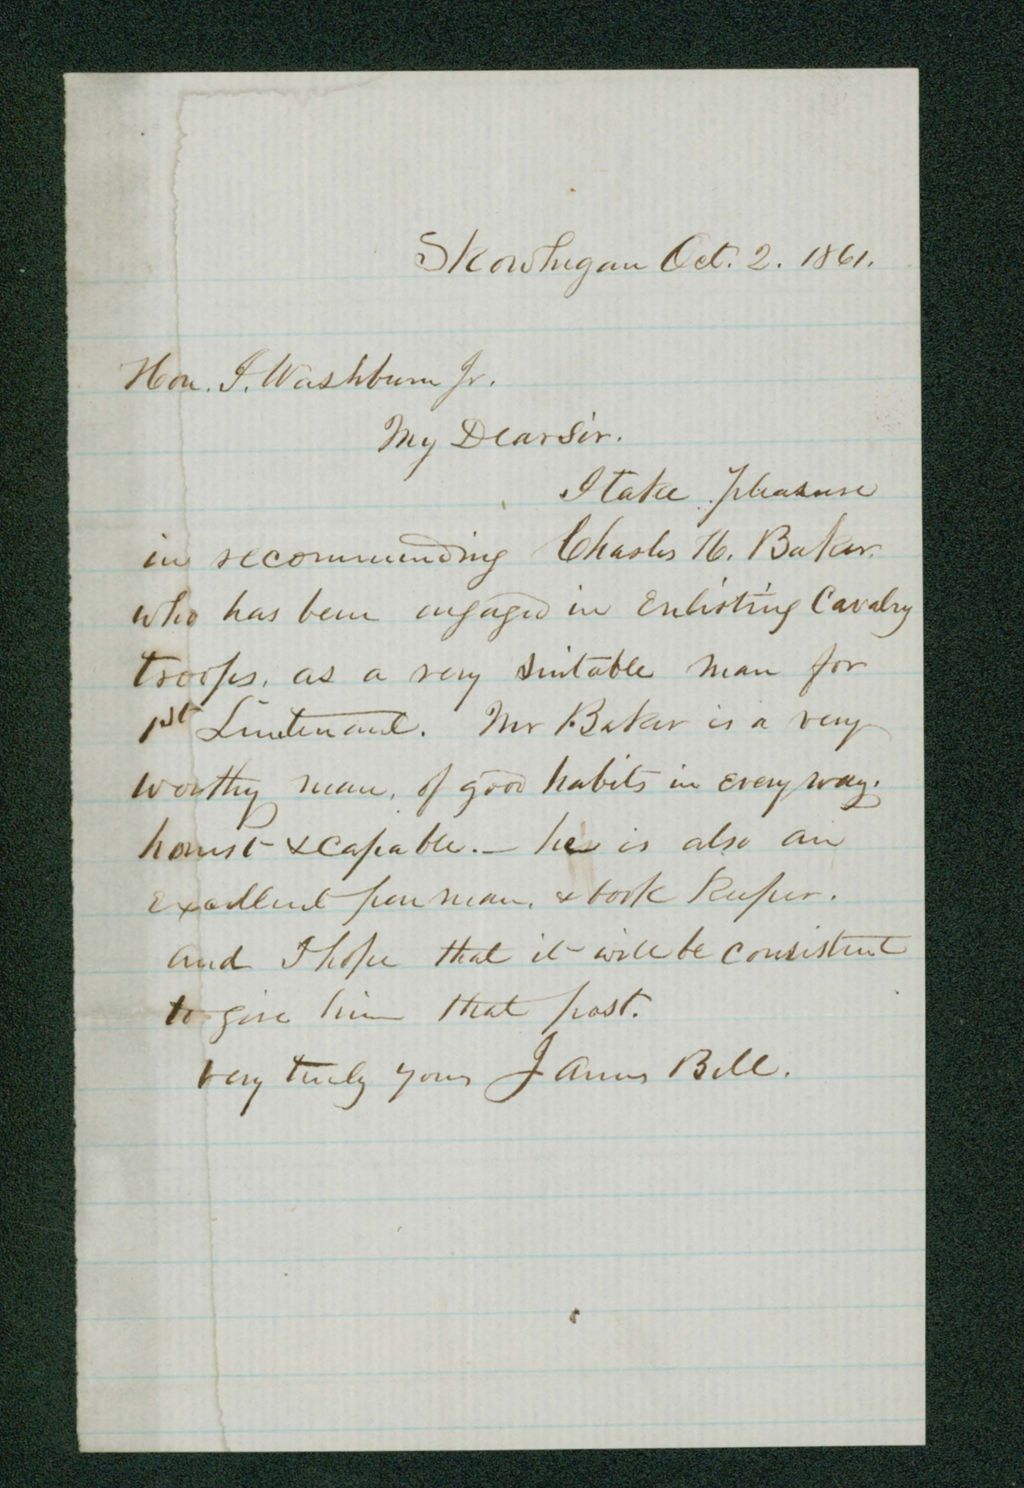 Skowhegan Oct. 2. 1861.
Hon. I. Washburn Jr.
My Dear Sir.
I take pleasure
in recommending Charles H. Baker.
who has been engaged in Enlisting Cavalry
troops, as a very suitable man for
1st Lieutenant. Mr Baker is a very
worthy man, of good habits in every way.
honest & capable. — he is also an
excellent penman, & book keeper.
and I hope that it will be consistent
to give him that post.
very truly yours James Bell.